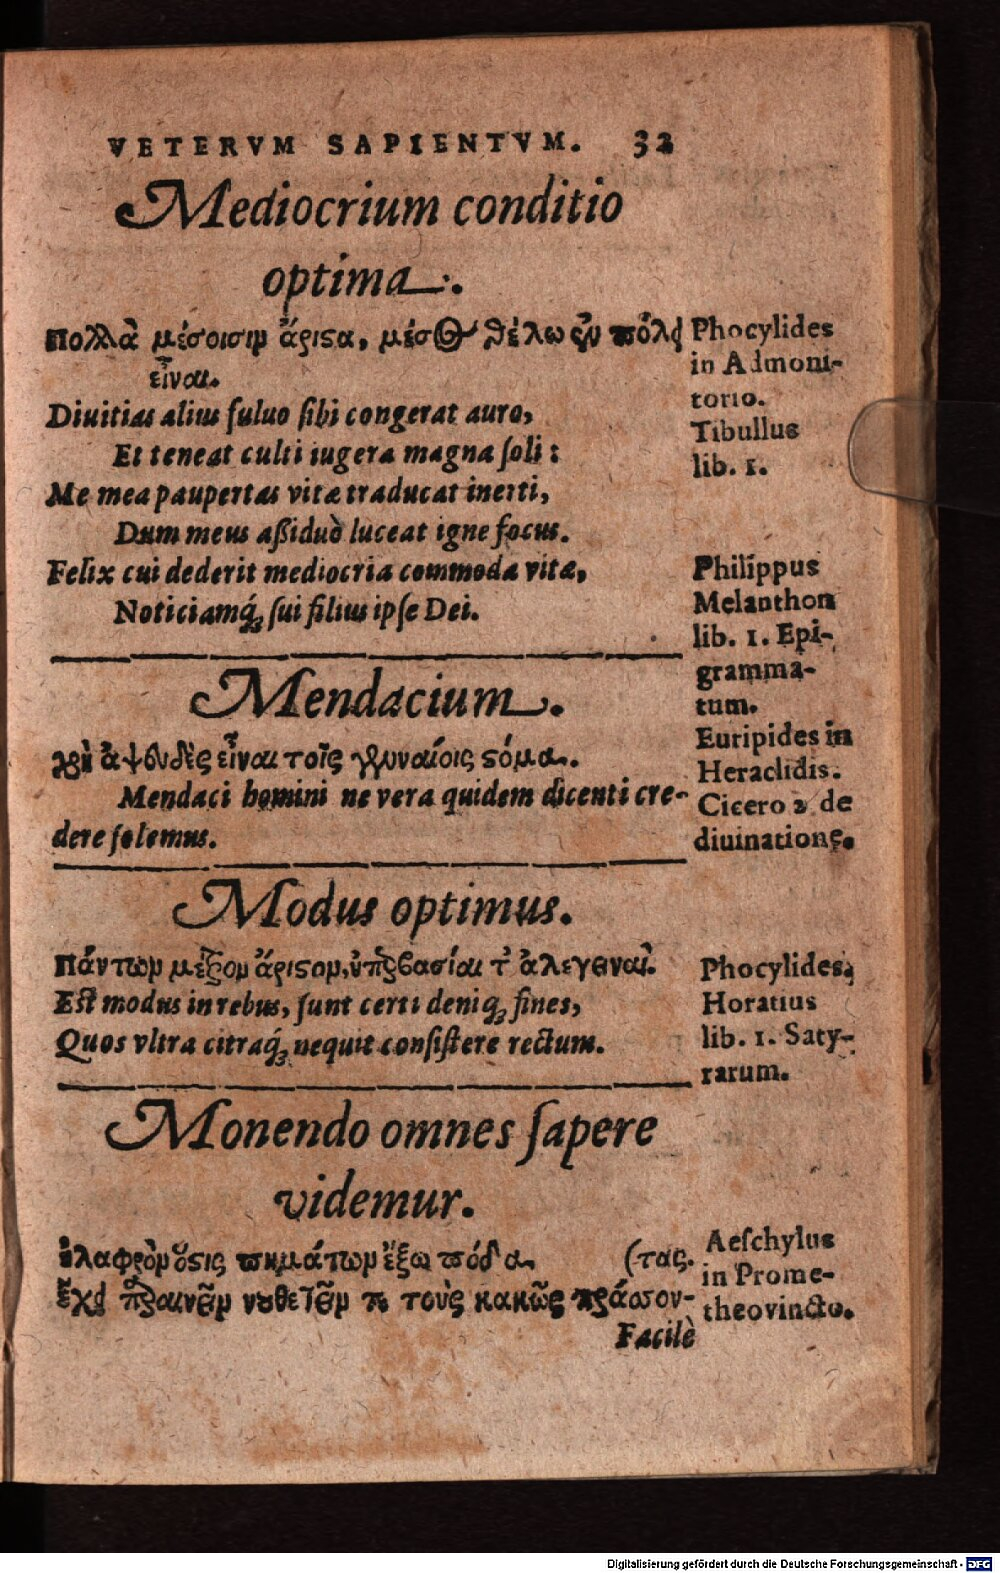 VETERVM SAPIENTVM. 32
Mediocrium conditio
optima.
Πολλὰ μέσοισιν ἄριστα, μέσος θέλω ἐν πόλει
εἶναι.
Phocylides
in Admoni-
torio.
Diuitias alius fuluo sibi congerat auro,
Et teneat culti iugera magna soli:
Me mea paupertas vitæ traducat inerti,
Dum meus aßiduò luceat igne focus.
Tibullus
lib. 1.
Felix cui dederit mediocria commoda vitæ,
Noticiamq́; sui filius ipse Dei.
Philippus
Melanthon
lib. 1. Epi-
gramma-
tum.
Mendacium.
χρὴ ἀψευδὲς εἶναι τοῖς γενναίοις στόμα.
Euripides in
Heraclidis.
Mendaci homini ne vera quidem dicenti cre-
dere solemus.
Cicero 2 de
diuinatione.
Modus optimus.
Πάντων μέτρον ἄριστον, ὑπερβασίαι τ' ἀλεγειναί.
Phocylides;
Est modus in rebus, sunt certi deniq; fines,
Quos vltra citraq́; nequit consistere rectum.
Horatius
lib. 1. Saty-
rarum.
Monendo omnes sapere
videmur.
ἐλαφρὸν ὅστις πημάτων ἔξω πόδα (τας.
ἔχει παραινεῖν νουθετεῖν τε τοὺς κακῶς πράσσον-
Aeschylus
in Prome-
theo vincto.
Facilè
Digitalisierung gefördert durch die Deutsche Forschungsgemeinschaft - DFG